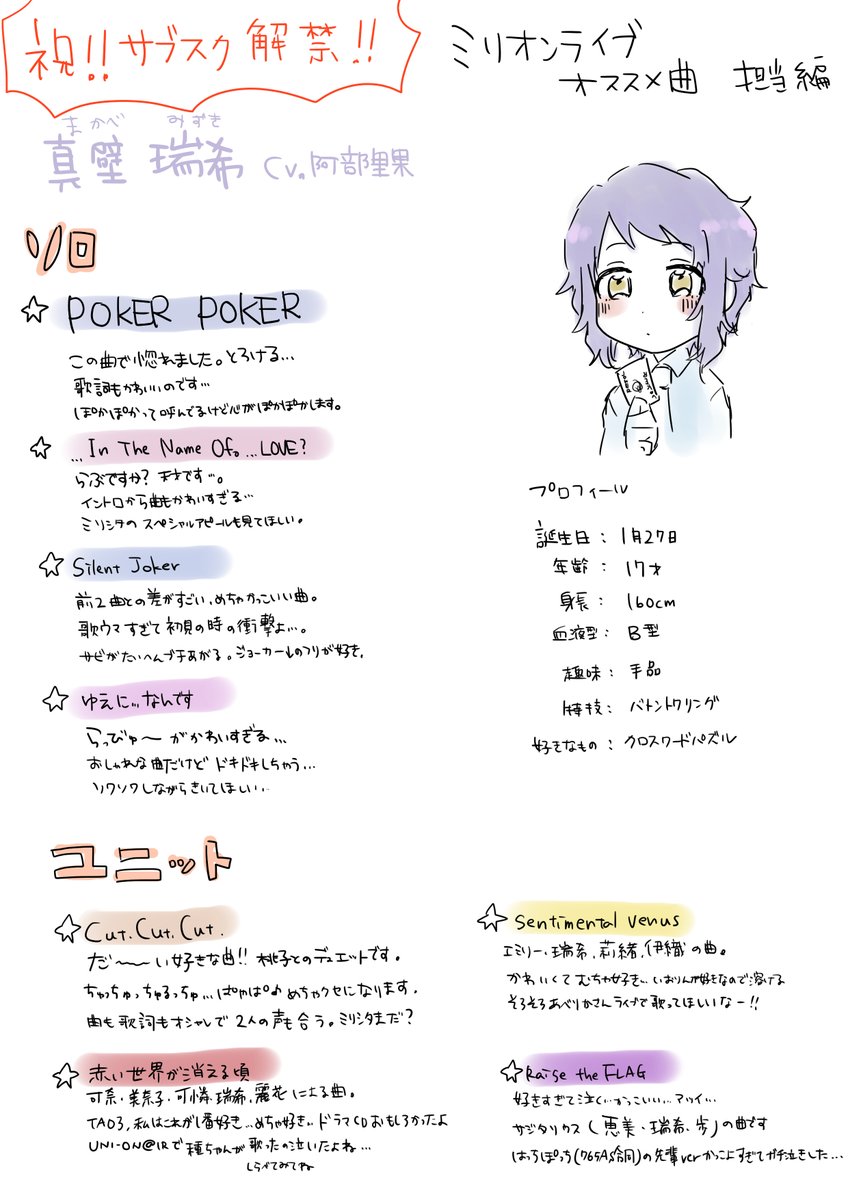 祝!! サブスク解禁!!
ミリオンライブ
オススメ曲 担当編
まかべ みずき
真壁 瑞希 Cv.阿部里果
ソロ
☆ POKER POKER
この曲で惚れました。とろける…
歌詞もかわいいのです…
ぽかぽかって呼んでるけど心がぽかぽかします。
☆ …In The Name Of。…LOVE?
らぶですか? すきです…。
イントロから曲もかわいすぎる…
ミリシタのスペシャルアピールも見てほしい。
☆ Silent Joker
前2曲との差がすごい、めちゃかっこいい曲。
歌ウマすぎて初見の時の衝撃よ…。
サビがたいへんブチあがる。ジョーカーしのフリが好き。
☆ ゆえに…なんです
らっびゅ〜がかわいすぎる…
おしゃれな曲だけどドキドキしちゃう…
ソワソワしながらきいてほしい…
プロフィール
誕生日: 1月27日
年齢: 17才
身長: 160cm
血液型: B型
趣味: 手品
特技: バトントワリング
好きなもの: クロスワードパズル
ユニット
☆ Cut. Cut. Cut.
だ〜〜い好きな曲!! 桃子とのデュエットです。
ちゃっちゅっちゅるっちゅ…ぱやぱ♪めちゃクセになります。
曲も歌詞もオシャレで2人の声も合う。ミリシタまだ?
☆ 赤い世界が消える頃
可奈・美奈子・可憐・瑞希・麗花による曲。
TA03,私はこれが1番好き…めちゃ好き…ドラマCDおもしろかったよ
UNI-ON@IRで種ちゃんが歌ったの泣いたよね…
しらべてみてね
☆ Sentimental Venus
エミリー・瑞希、莉緒、伊織の曲。
かわいくてむちゃ好き…いおりんが好きなので溶ける
そろそろあべりかさんライブで歌ってほしいなー!!
☆ Raise the FLAG
好きすぎて泣く…かっこいい…アツイ…
サジタリウス(恵美・瑞希・歩)の曲です
はっちぽっち(765AS合同)の先輩verかっこよすぎてガチ泣きした…